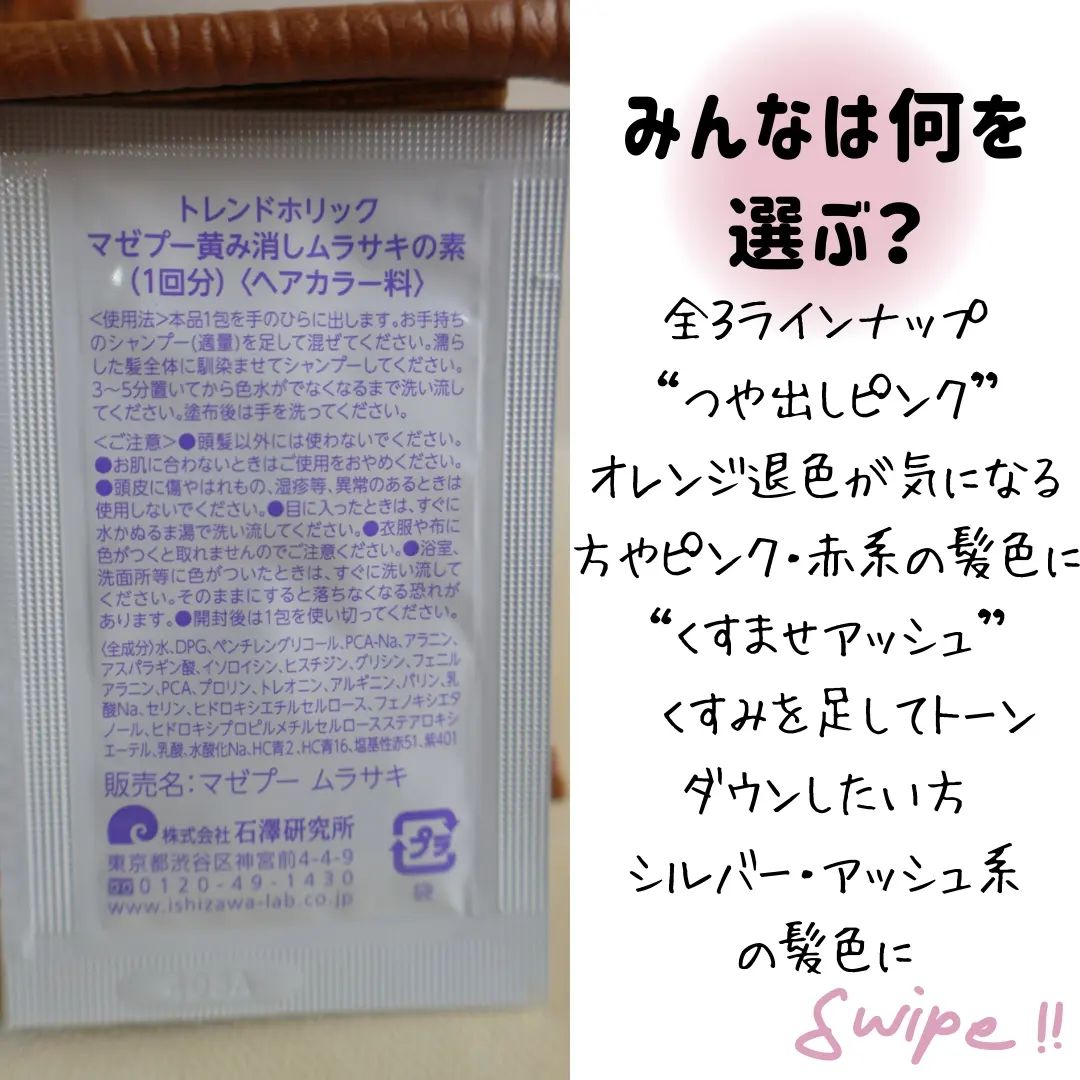 トレンドホリック
マゼプー黄み消しムラサキの素
(1回分)〈ヘアカラー料〉
<使用法>本品1包を手のひらに出します。お手持ち
のシャンプー(適量)を足して混ぜてください。濡ら
した髪全体に馴染ませてシャンプーしてください。
3〜5分置いてから色水がでなくなるまで洗い流し
てください。塗布後は手を洗ってください。
<ご注意>●頭髪以外には使わないでください。
●お肌に合わないときはご使用をおやめください。
●頭皮に傷やはれもの、湿疹等、異常のあるときは
使用しないでください。●目に入ったときは、すぐに
水かぬるま湯で洗い流してください。●衣服や布に
色がつくと取れませんのでご注意ください。●浴室、
洗面所等に色がついたときは、すぐに洗い流して
ください。そのままにすると落ちなくなる恐れが
あります。●開封後は1包を使い切ってください。
〈全成分〉水、DPG、ペンチレングリコール、PCA-Na、アラニン、
アスパラギン酸、イソロイシン、ヒスチジン、グリシン、フェニル
アラニン、PCA、プロリン、トレオニン、アルギニン、バリン、乳
酸Na、セリン、ヒドロキシエチルセルロース、フェノキシエタ
ノール、ヒドロキシプロピルメチルセルロースステアロキシ
エーテル、乳酸、水酸化Na、HC青2、HC青16、塩基性赤51、紫401
販売名:マゼプー ムラサキ
株式会社 石澤研究所
東京都渋谷区神宮前4-4-9
0120-49-1430
www.ishizawa-lab.co.jp
プラ
袋
みんなは何を
選ぶ?
全3ラインナップ
“つや出しピンク”
オレンジ退色が気になる
方やピンク・赤系の髪色に
“くすませアッシュ”
くすみを足してトーン
ダウンしたい方
シルバー・アッシュ系
の髪色に
Swipe!!